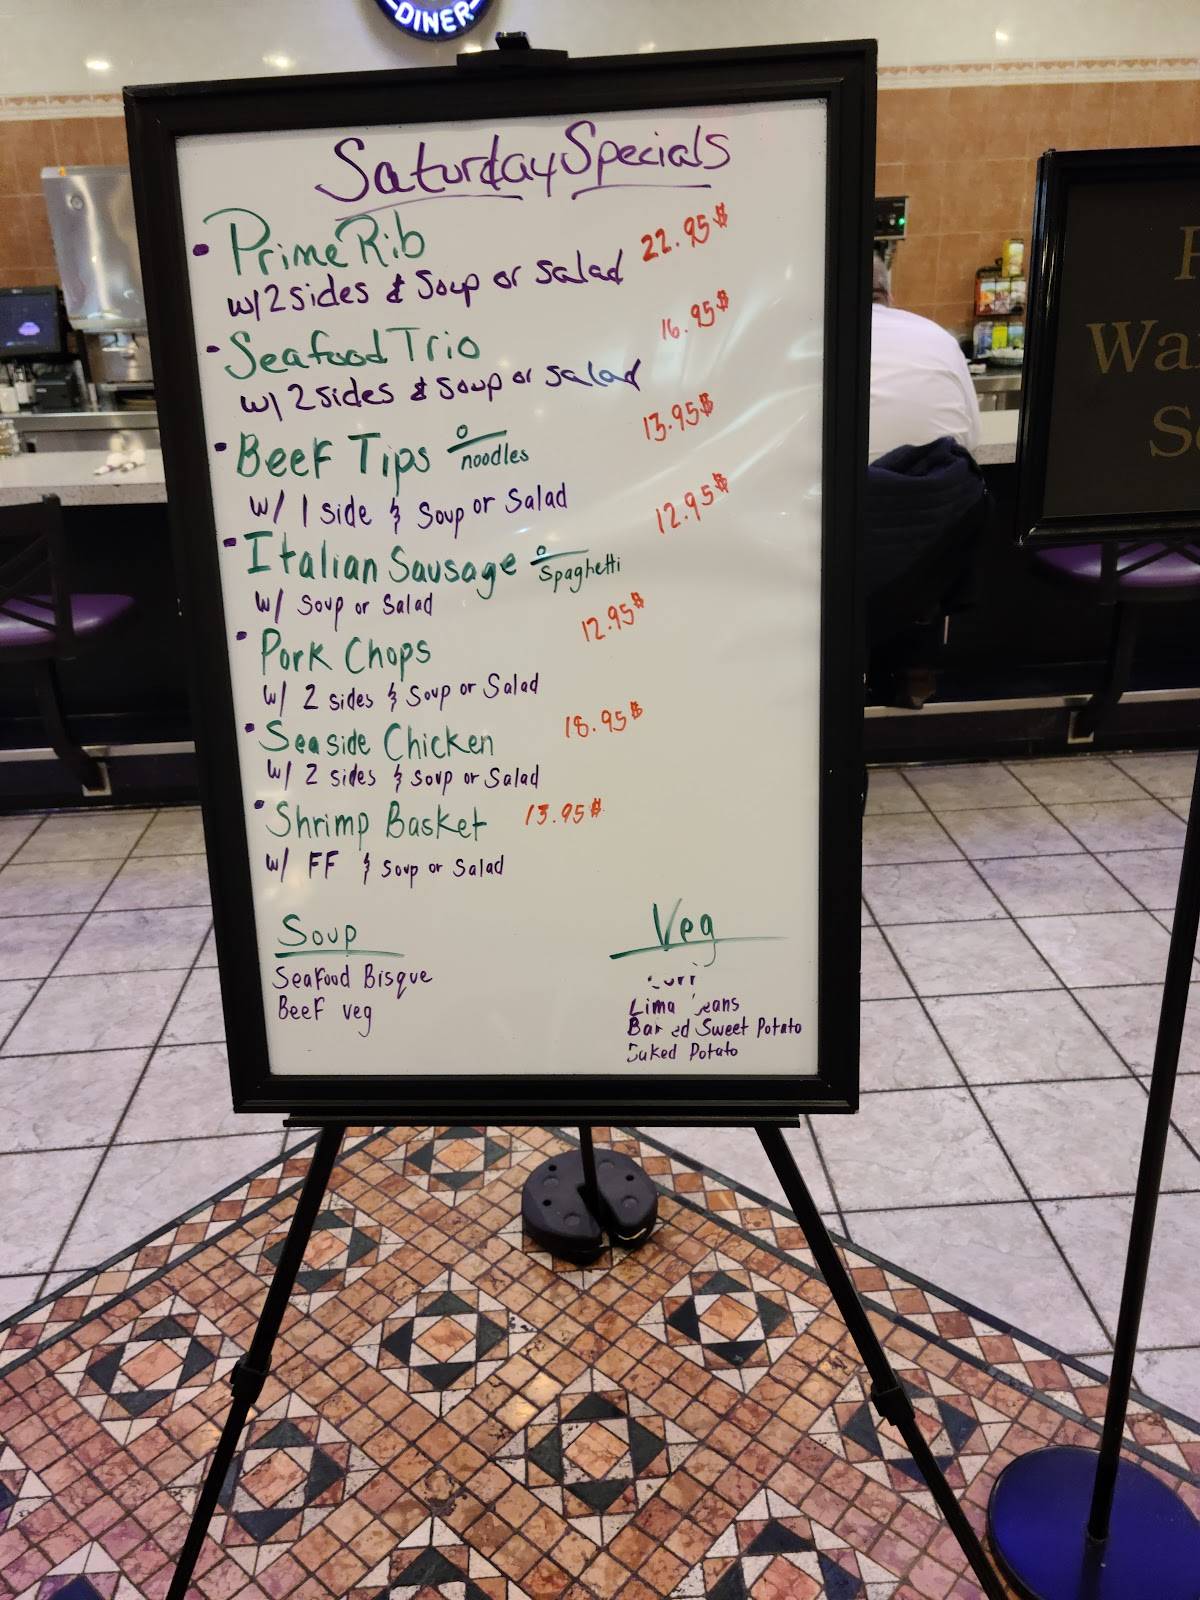 DINER
Saturday Specials
• Prime Rib 22.95$
w/ 2 sides & Soup or Salad
• Seafood Trio 16.95$
w/ 2 sides & Soup or Salad
• Beef Tips o/noodles 13.95$
w/ 1 side & Soup or Salad
• Italian Sausage o/Spaghetti 12.95$
w/ Soup or Salad
• Pork Chops 12.95$
w/ 2 sides & Soup or Salad
• Seaside Chicken 18.95$
w/ 2 sides & Soup or Salad
• Shrimp Basket 13.95$
w/ FF & Soup or Salad
Soup
Seafood Bisque
Beef Veg
Veg
Lima eans
Ba ed Sweet Potato
Baked Potato
Wa